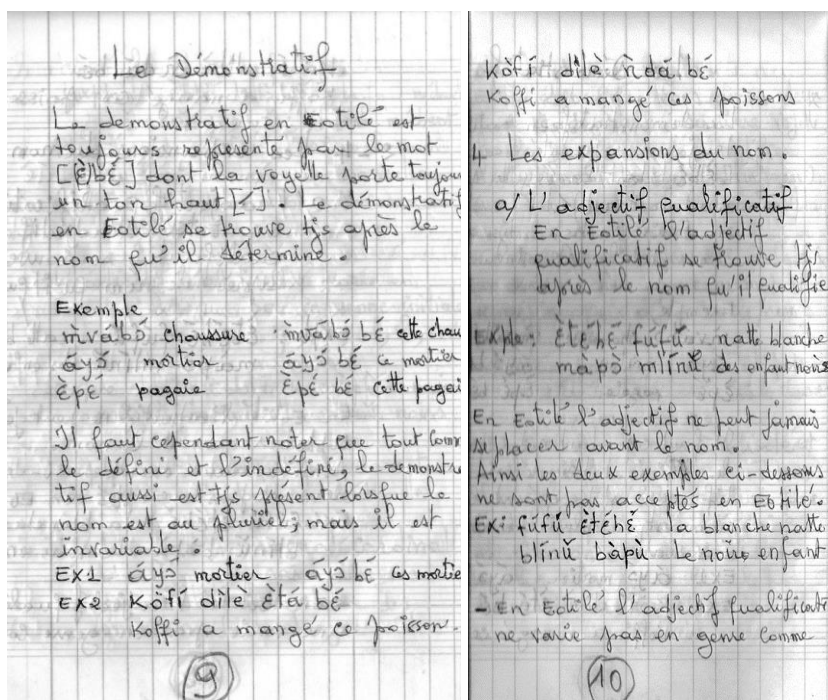 Le Démonstratif
Le demonstratif en Eotilé est
toujours représenté par le mot
[bɛ́] dont la voyelle porte toujou
un ton haut [ˊ]. Le démonstratif
en Eotilé se trouve tjs après le
nom qu'il détermine.
Exemple
m̀vábɔ́ chaussure m̀vábɔ́ bɛ́ cette chau
áyɔ́ mortier áyɔ́ bɛ́ ce mortier
ɛ̀pɛ́ pagaie ɛ̀pɛ́ bɛ́ cette pagai
Il faut cependant noter que tout com
le défini et l'indéfini, le demonstra
tif aussi est tjs présent lorsque le
nom est au pluriel; mais il est
invariable.
EX1 áyɔ́ mortier áyɔ́ bɛ́ ces mortie
EX2 Kòfí dìlè ɛ̀tá bɛ́
Koffi a mangé ce poisson.
9
Kòfí dìlè ǹdá bɛ́
Koffi a mangé ces poissons
4 Les expansions du nom.
a/ L'adjectif qualificatif
En Eotilé l'adjectif
qualificatif se trouve tjs
après le nom qu'il qualifie
Exple: ɛ̀tɛ́hɛ́ fúfú natte blanche
màpɔ̀ mlínú des enfant noirs
En Eotilé l'adjectif ne peut jamais
se placer avant le nom.
Ainsi les deux exemples ci-dessous
ne sont pas acceptés en Eotilé.
EX: fúfú ɛ̀tɛ́hɛ́ la blanche natte
blínú bàpù Le noir enfant
- En Eotilé l'adjectif qualificati
ne varie pas en genre comme
10